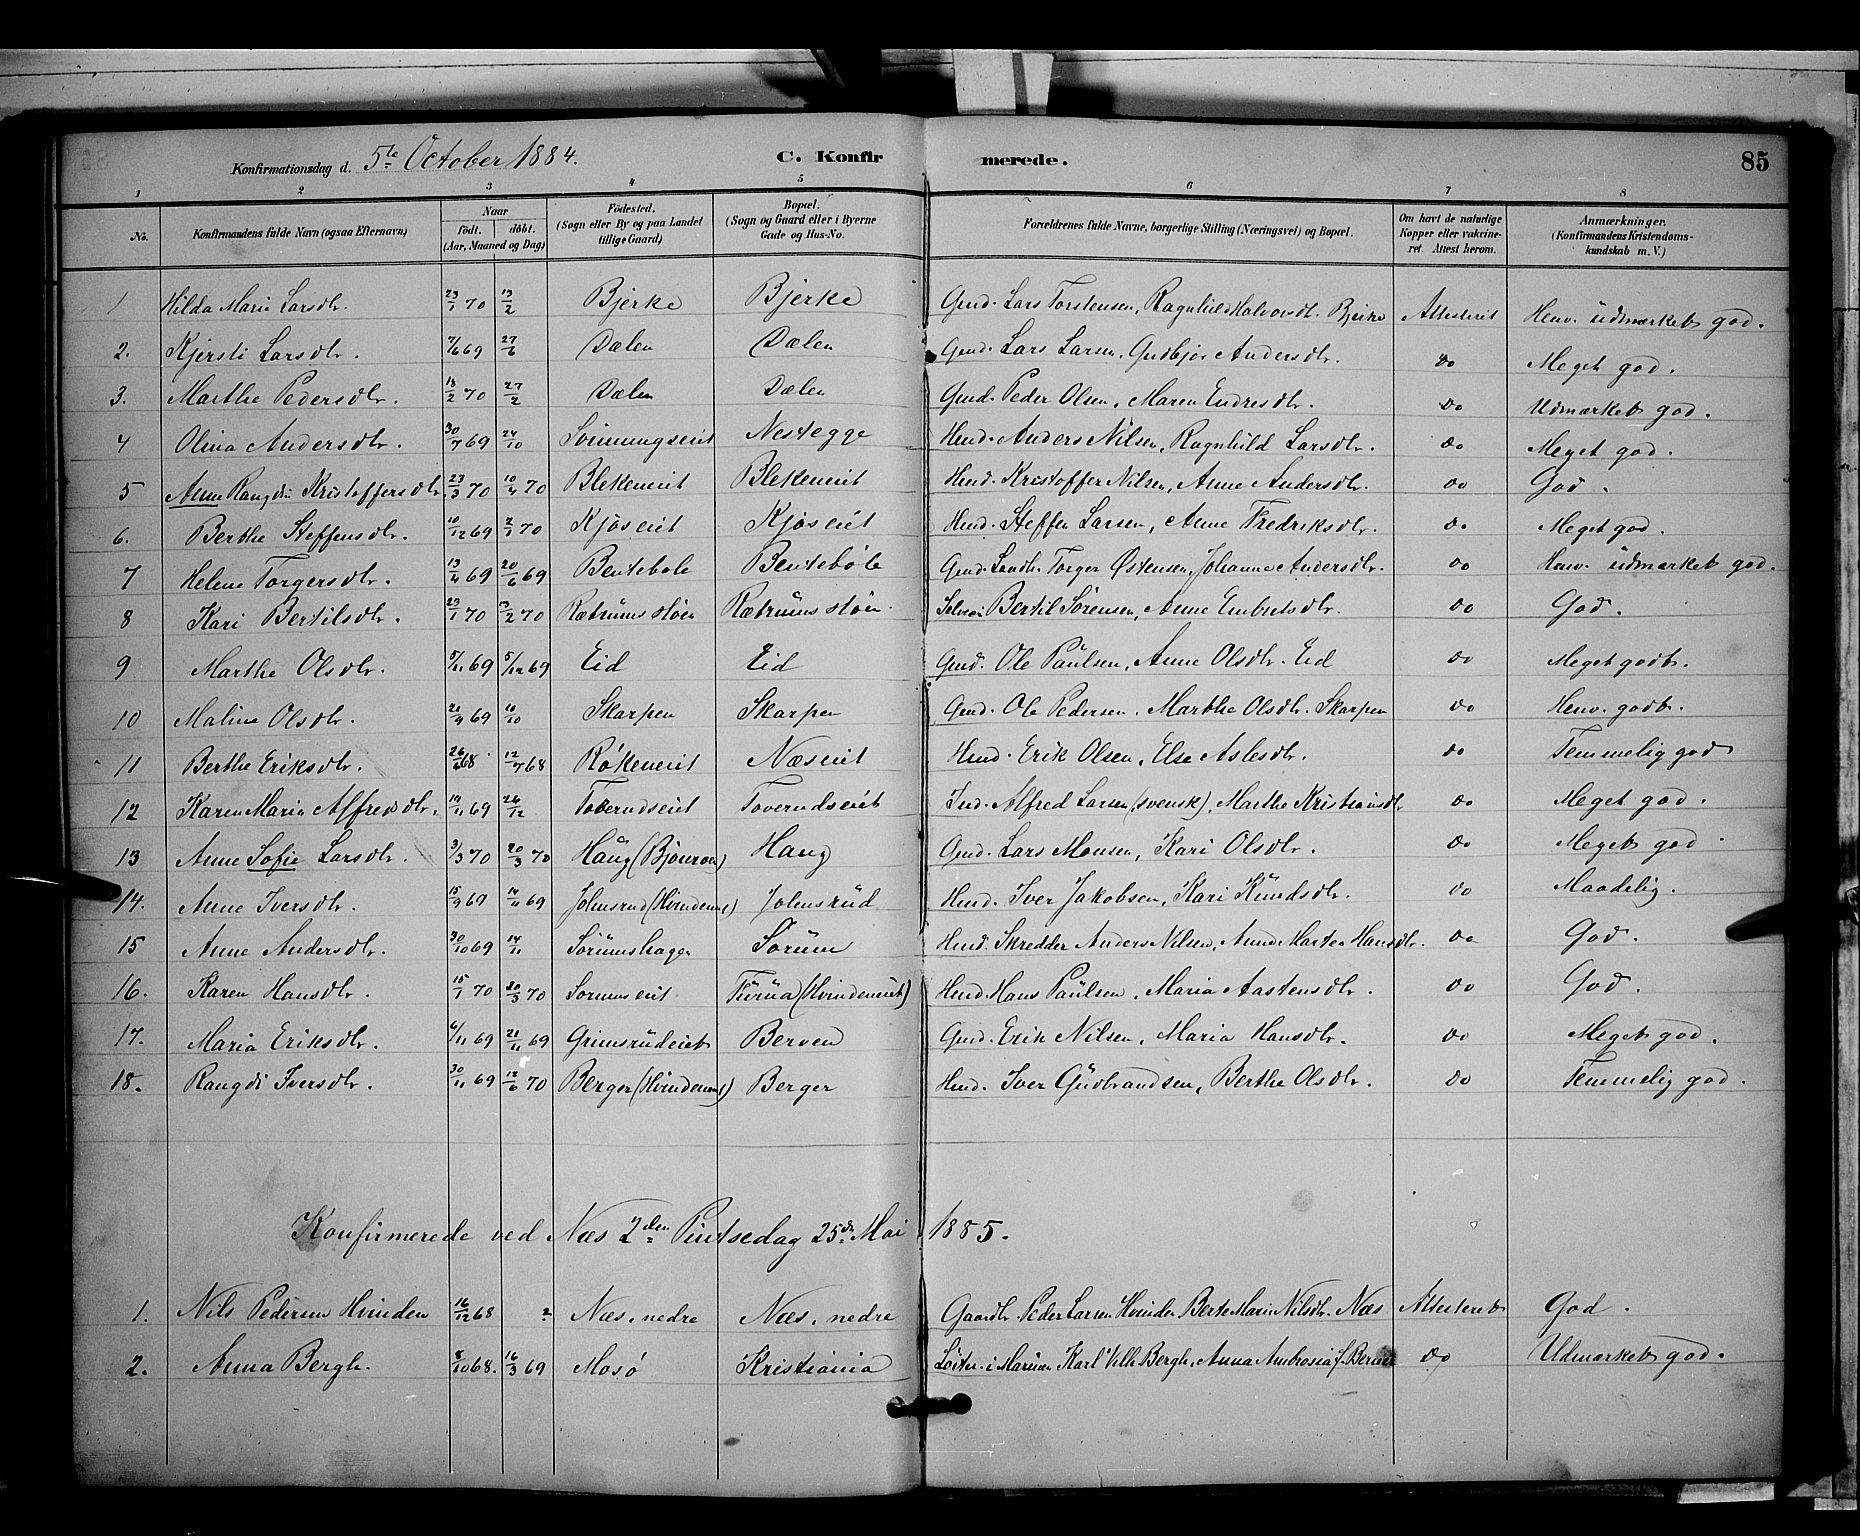 Konfirmationsdag d. 5te October 1884. C. Konfirmerede. 85
1 2 3 4 5 6 7 8
No. Konfirmandens fulde Navn (ogsaa Efternavn) Naar født. døbt. (Aar, Maaned og Dag) Födested. (Sogn eller By og paa Landet tillige Gaard) Bopæl. (Sogn og Gaard eller i Byerne Gade og Hus-No. Forældrenes fulde Navne, borgerlige Stilling (Næringsvei) og Bopæl. Om havt de naturlige Kopper eller vakcineret. Attest herom. Anmærkninger. (Konfirmandens Kristendomskundskab m. V.)
1 Hilda Maria Larsdtr. 23/1 70 13/2 Bjerke Bjerke Gmd. Lars Torstensen, Ragnhild Halvorsdt. Bjerke Attesteret Henv. üdmærket god.
2. Kjersti Larsdtr. 7/6 69 27/6 Dælen Dælen Gmd. Lars Larsen, Gudbjør Andersdtr. do Meget god.
3. Marthe Pedersdtr. 18/2 70 27/2 Dælen Dælen Gmd. Peder Olsen, Maren Endresdtr. do Udmærket god.
4 Olina Andersdtr. 30/7 69 24/10 Svinningseiet Nestegge Hmd. Anders Nilsen, Ragnhild Larsdtr. do Meget god.
5 Anne Rangdi Kristoffersdtr. 23/3 70 10/4 70 Blekeneiet Blekeneiet Hmd. Kristoffer Nilsen, Anne Andersdtr. do God.
6. Berthe Steffensdtr. 10/12 69 2/1 70 Kjøseiet Kjøseiet Hmd. Steffen Larsen, Anne Fredriksdtr. do Meget god.
7 Helene Torgersdtr. 13/4 69 20/6 69 Bentebøle Bentebøle Gmd. Landh. Torger Østensen, Johanne Andersdtr. do Henv. üdmærket god.
8 Kari Bertilsdtr. 23/1 70 13/2 70 Rætrumsstøen Rætrumsstøen. Selveier Bertil Sørensen, Anne Embretsdtr. do God.
9 Marthe Olsdtr. 5/11 69 5/12 69 Eid Eid Gmd. Ole Paulsen, Anne Olsdtr. Eid do Meget godt.
10 Malina Olsdtr. 21/9 69 10/10 Skarpen Skarpen Gmd. Ole Pedersen, Marthe Olsdtr. Skarpen do Henv. godt.
11 Berthe Eriksdtr. 26/6 68 12/7 68 Røkeneiet Næseiet Hmd. Erik Olsen, Else Aslesdtr. do Temmelig god
12 Karen Maria Alfredsdtr. 14/11 69 26/12 Toverudseiet Toverudseiet Ind. Alfred Larsen (svensk), Marthe Kristiansdtr do Meget god.
13 Anne Sofie Larsdtr. 3/3 70 20/3 70 Haug (Bjoneroa) Haug Gmd. Lars Monsen, Kari Olsdtr. do Meget god
14. Anne Iversdtr. 15/9 69 14/11 69 Johnsrud (Hvindeneiet) Johnsrud Hmd. Iver Jakobsen, Kari Knudsdtr. do Maadelig.
15 Anne Andersdtr. 30/10 69 14/11 Sørumshagen Sørum Hmd. Skredder Anders Nilsen, Anne Martea Hansdtr. do God.
16. Karen Hansdtr. 15/1 70 20/3 70 Sørumseiet Furua (Hvindeneiet) Hmd. Hans Paulsen, Maria Aastensdtr. do God.
17. Maria Eriksdtr. 6/11 69 21/11 69 Grimsrudeiet Berven Gmd. Erik Nilsen, Maria Hansdtr. do Meget god.
18. Rangdi Iversdtr. 30/11 69 12/6 70 Berger (Hvindeneiet) Berger Hmd. Iver Gudbrandsen, Berthe Olsdtr. do Temmelig god.
Konfirmerede ved Næs 2den Pintsedag 25de Mai 1885.
1. Nils Pedersen Hvinden 16/12 68 ? Næs, nedre Næs, nedre Gaardbr. Peder Larsen Hvinden Berte Marie Nilsdtr. Næs Attesteret God.
2. Anna Bergh. 8/10 68. 16/3 69 Mosø Kristiania Løitn. i Marinen Karl Vilh Bergh, Anna Ambrosia f. do Udmærket god.